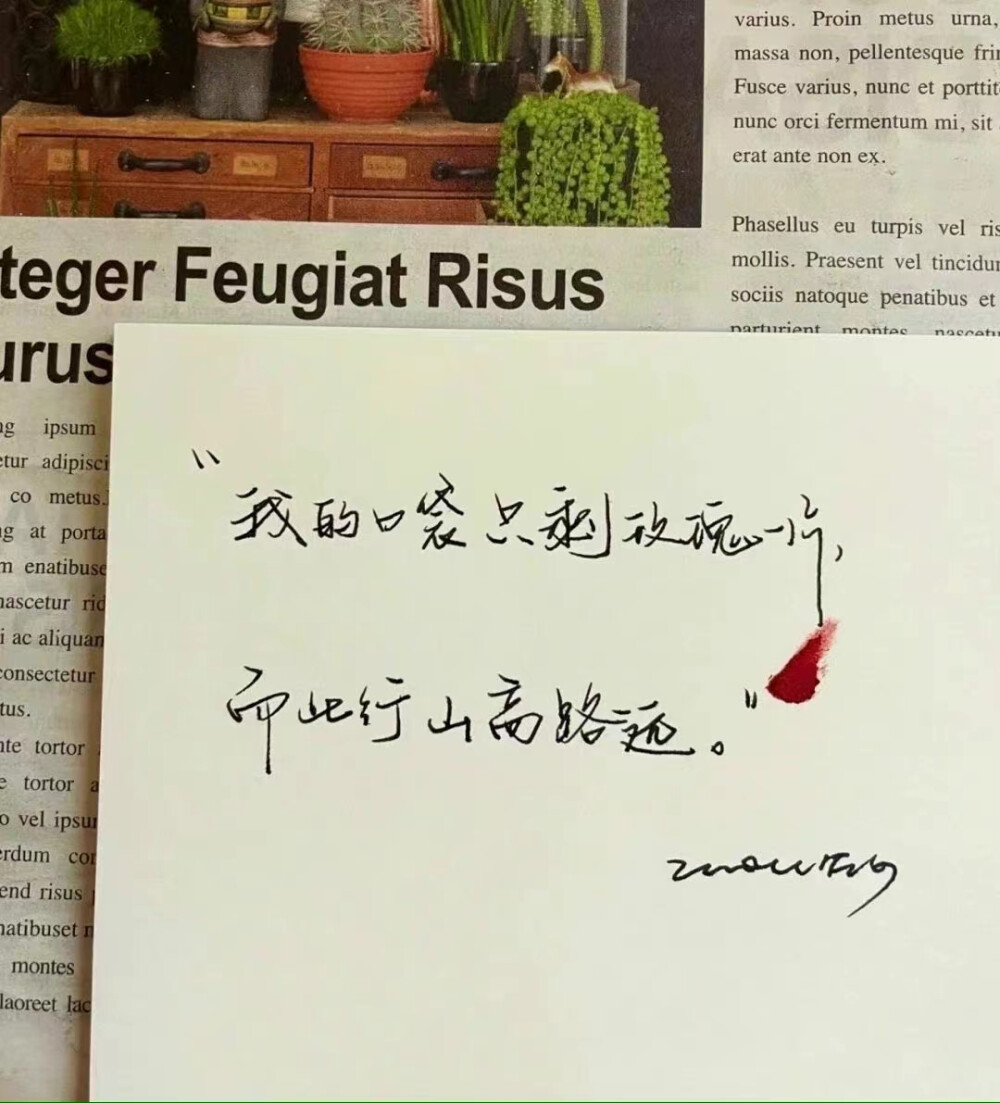 varius. Proin metus urna,
massa non, pellentesque frin
Fusce varius, nunc et porttit
nunc orci fermentum mi, sit
erat ante non ex.
Phasellus eu turpis vel ris
mollis. Praesent vel tincidun
sociis natoque penatibus et
parturient montes, nascetu
teger Feugiat Risus
urus
ng ipsum
etur adipisci
co metus.
ng at porta
m enatibuse
nascetur rid
i ac aliquan
consectetur
tus.
nte tortor
e tortor a
o vel ipsum
erdum con
end risus
natibuset n
montes
laoreet lac
“我的口袋只剩玫瑰一片，
而此行山高路远。”